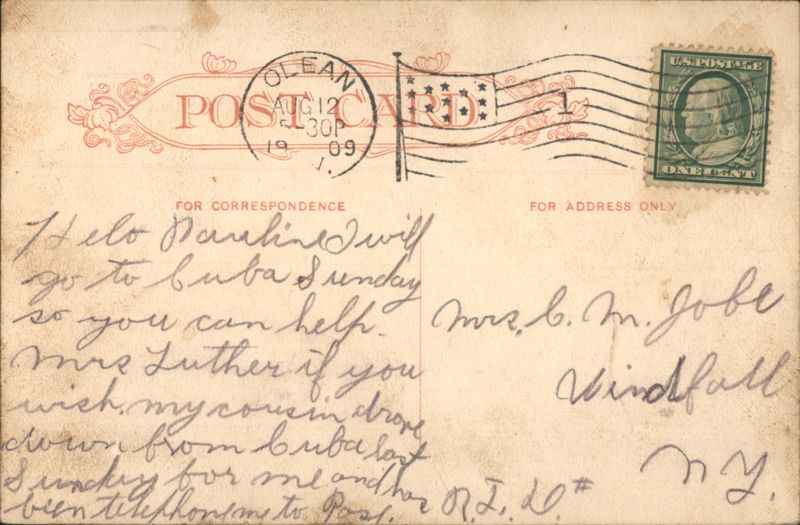 POST CARD
OLEAN
AUG 12
5-30P
19 09
1
U.S. POSTAGE
ONE CENT
FOR CORRESPONDENCE
FOR ADDRESS ONLY
Helo Pauline I will
go to Cuba Sunday
so you can help
Mrs Luther if you
wish. my cousin drove
down from Cuba last
Sunday for me and has
been telephone me to
Mrs. C. M. Jobe
Windfall
N.Y.
R.F.D. #